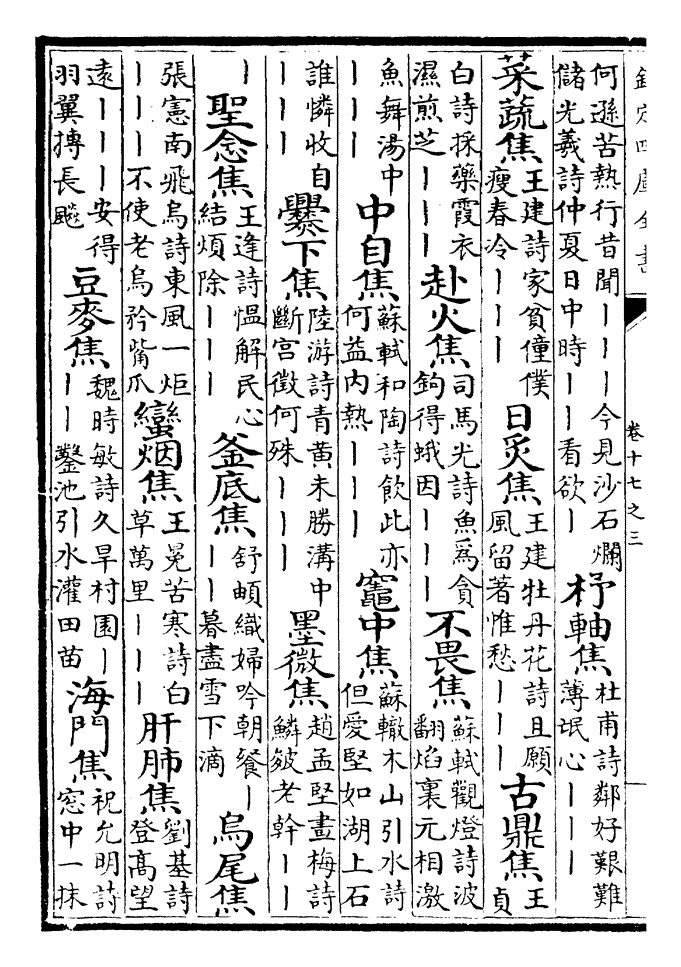 欽定四庫全書
卷十七之三
何遜苦熱行昔聞丨丨丨今見沙石爛
儲光羲詩仲夏日中時丨丨看欲丨
杼軸焦
杜甫詩鄰好艱難
薄氓心丨丨丨
菜蔬焦
王建詩家貧僮僕
瘦春冷丨丨丨
日炙焦
王建牡丹花詩且願
風留著惟愁丨丨丨
古鼎焦
王
貞
白詩採藥霞衣
濕煎芝丨丨丨
赴火焦
司馬光詩魚爲貪
鉤得蛾因丨丨丨
不畏焦
蘇軾觀燈詩波
翻焰裏元相激
魚舞湯中
丨丨丨
中自焦
蘇軾和陶詩飲此亦
何益内熱丨丨丨
竈中焦
蘇轍木山引水詩
但愛堅如湖上石
誰憐收自
丨丨丨
爨下焦
陸游詩青黄未勝溝中
斷宫徵何殊丨丨丨
墨微焦
趙孟堅畫梅詩
鱗皴老幹丨丨
丨
聖念焦
王逢詩愠解民心
結煩除丨丨丨
釜底焦
舒頔織婦吟朝餐丨
丨丨暮盡雪下滴
烏尾焦
張憲南飛烏詩東風一炬
丨丨丨不使老烏矜觜爪
蠻烟焦
王冕苦寒詩白
草萬里丨丨丨
肝肺焦
劉基詩
登髙望
遠丨丨丨安得
羽翼摶長飈
豆麥焦
魏時敏詩久旱村園丨
丨丨鑿池引水灌田苗
海門焦
祝允明詩
窓中一抹